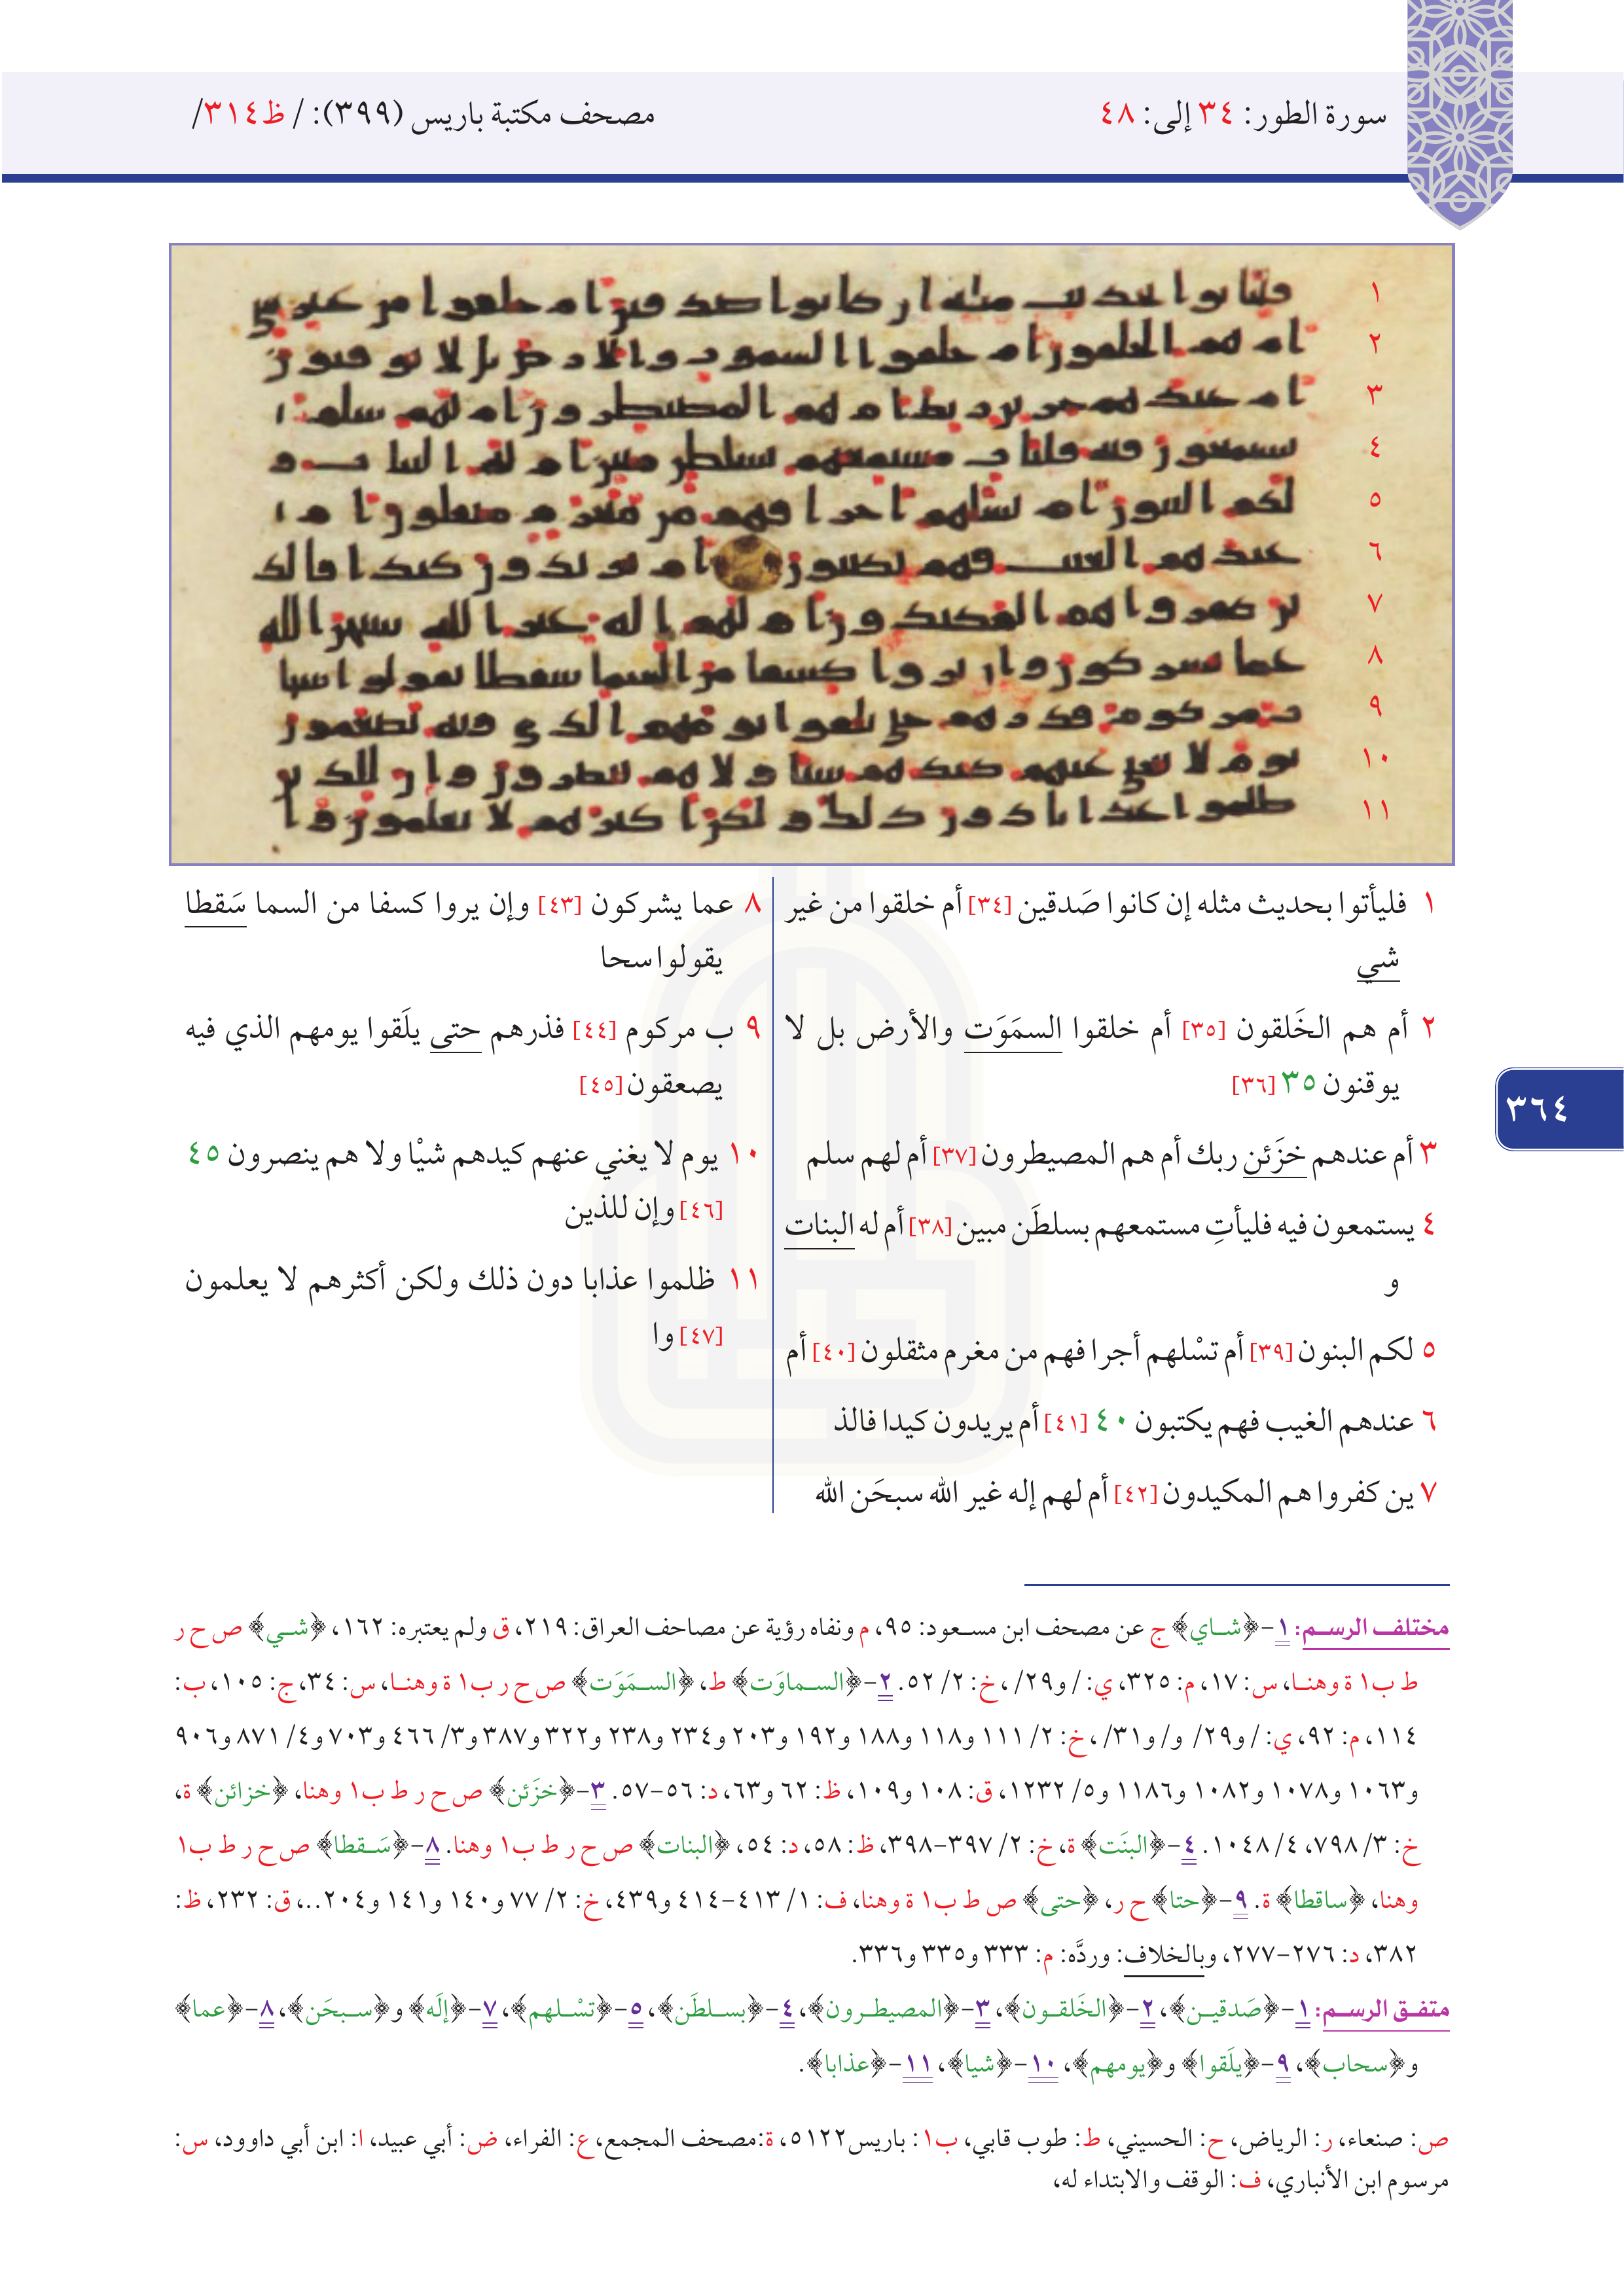 سورة الطور: ٣٤ إلى: ٤٨
مصحف مكتبة باريس (٣٩٩): / ظ٣١٤/
١
٢
٣
٤
٥
٦
٧
٨
٩
١٠
١١
١ فليأتوا بحديث مثله إن كانوا صَدقين [٣٤] أم خلقوا من غير
شي
٢ أم هم الخَلقون [٣٥] أم خلقوا السمَوَت والأرض بل لا
يوقنون ٣٥ [٣٦]
٣ أم عندهم خزَئن ربك أم هم المصيطرون [٣٧] أم لهم سلم
٤ يستمعون فيه فليأتِ مستمعهم بسلطَن مبين [٣٨] أم له البنات
و
٥ لكم البنون [٣٩] أم تسْلهم أجرا فهم من مغرم مثقلون [٤٠] أم
٦ عندهم الغيب فهم يكتبون ٤٠ [٤١] أم يريدون كيدا فالذ
٧ ين كفروا هم المكيدون [٤٢] أم لهم إله غير الله سبحَن الله
٨ عما يشركون [٤٣] وإن يروا كسفا من السما سَقطا
يقولوا سحا
٩ ب مركوم [٤٤] فذرهم حتى يلَقوا يومهم الذي فيه
يصعقون [٤٥]
١٠ يوم لا يغني عنهم كيدهم شيْا ولا هم ينصرون ٤٥
[٤٦] وإن للذين
١١ ظلموا عذابا دون ذلك ولكن أكثرهم لا يعلمون
[٤٧] وا
٣٦٤
مختلف الرسم: ١-﴿شاي﴾ ج عن مصحف ابن مسعود: ٩٥، م ونفاه رؤية عن مصاحف العراق: ٢١٩، ق ولم يعتبره: ١٦٢، ﴿شي﴾ ص ح ر
ط ب١ ة وهنا، س: ١٧، م: ٣٢٥، ي: / و٢٩/ ، خ: ٢/ ٥٢. ٢-﴿السماوَت﴾ ط، ﴿السمَوَت﴾ ص ح ر ب١ ة وهنا، س: ٣٤، ج: ١٠٥، ب:
١١٤، م: ٩٢، ي: / و٢٩/ و/ و٣١/ ، خ: ٢/ ١١١ و١١٨ و١٨٨ و١٩٢ و٢٠٣ و٢٣٤ و٢٣٨ و٣٢٢ و٣٨٧ و٣/ ٤٦٦ و٧٠٣ و٤/ ٨٧١ و٩٠٦
و١٠٦٣ و١٠٧٨ و١٠٨٢ و١١٨٦ و٥/ ١٢٣٢، ق: ١٠٨ و١٠٩، ظ: ٦٢ و٦٣، د: ٥٦-٥٧. ٣-﴿خزَئن﴾ ص ح ر ط ب١ وهنا، ﴿خزائن﴾ ة،
خ: ٣/ ٧٩٨، ٤/ ١٠٤٨. ٤-﴿البنَت﴾ ة، خ: ٢/ ٣٩٧-٣٩٨، ظ: ٥٨، د: ٥٤، ﴿البنات﴾ ص ح ر ط ب١ وهنا. ٨-﴿سَقطا﴾ ص ح ر ط ب١
وهنا، ﴿ساقطا﴾ ة. ٩-﴿حتا﴾ ح ر، ﴿حتى﴾ ص ط ب١ ة وهنا، ف: ١/ ٤١٣-٤١٤ و٤٣٩، خ: ٢/ ٧٧ و١٤٠ و١٤١ و٢٠٤...، ق: ٢٣٢، ظ:
٣٨٢، د: ٢٧٦-٢٧٧، وبالخلاف: وردَّه: م: ٣٣٣ و٣٣٥ و٣٣٦.
متفق الرسم: ١-﴿صَدقين﴾، ٢-﴿الخَلقون﴾، ٣-﴿المصيطرون﴾، ٤-﴿بسلطَن﴾، ٥-﴿تسْلهم﴾، ٧-﴿إلَه﴾ و﴿سبحَن﴾، ٨-﴿عما﴾
و﴿سحاب﴾، ٩-﴿يلَقوا﴾ و﴿يومهم﴾، ١٠-﴿شيا﴾، ١١-﴿عذابا﴾.
ص: صنعاء، ر: الرياض، ح: الحسيني، ط: طوب قابي، ب١: باريس٥١٢٢، ة:مصحف المجمع، ع: الفراء، ض: أبي عبيد، ا: ابن أبي داوود، س:
مرسوم ابن الأنباري، ف: الوقف والابتداء له،